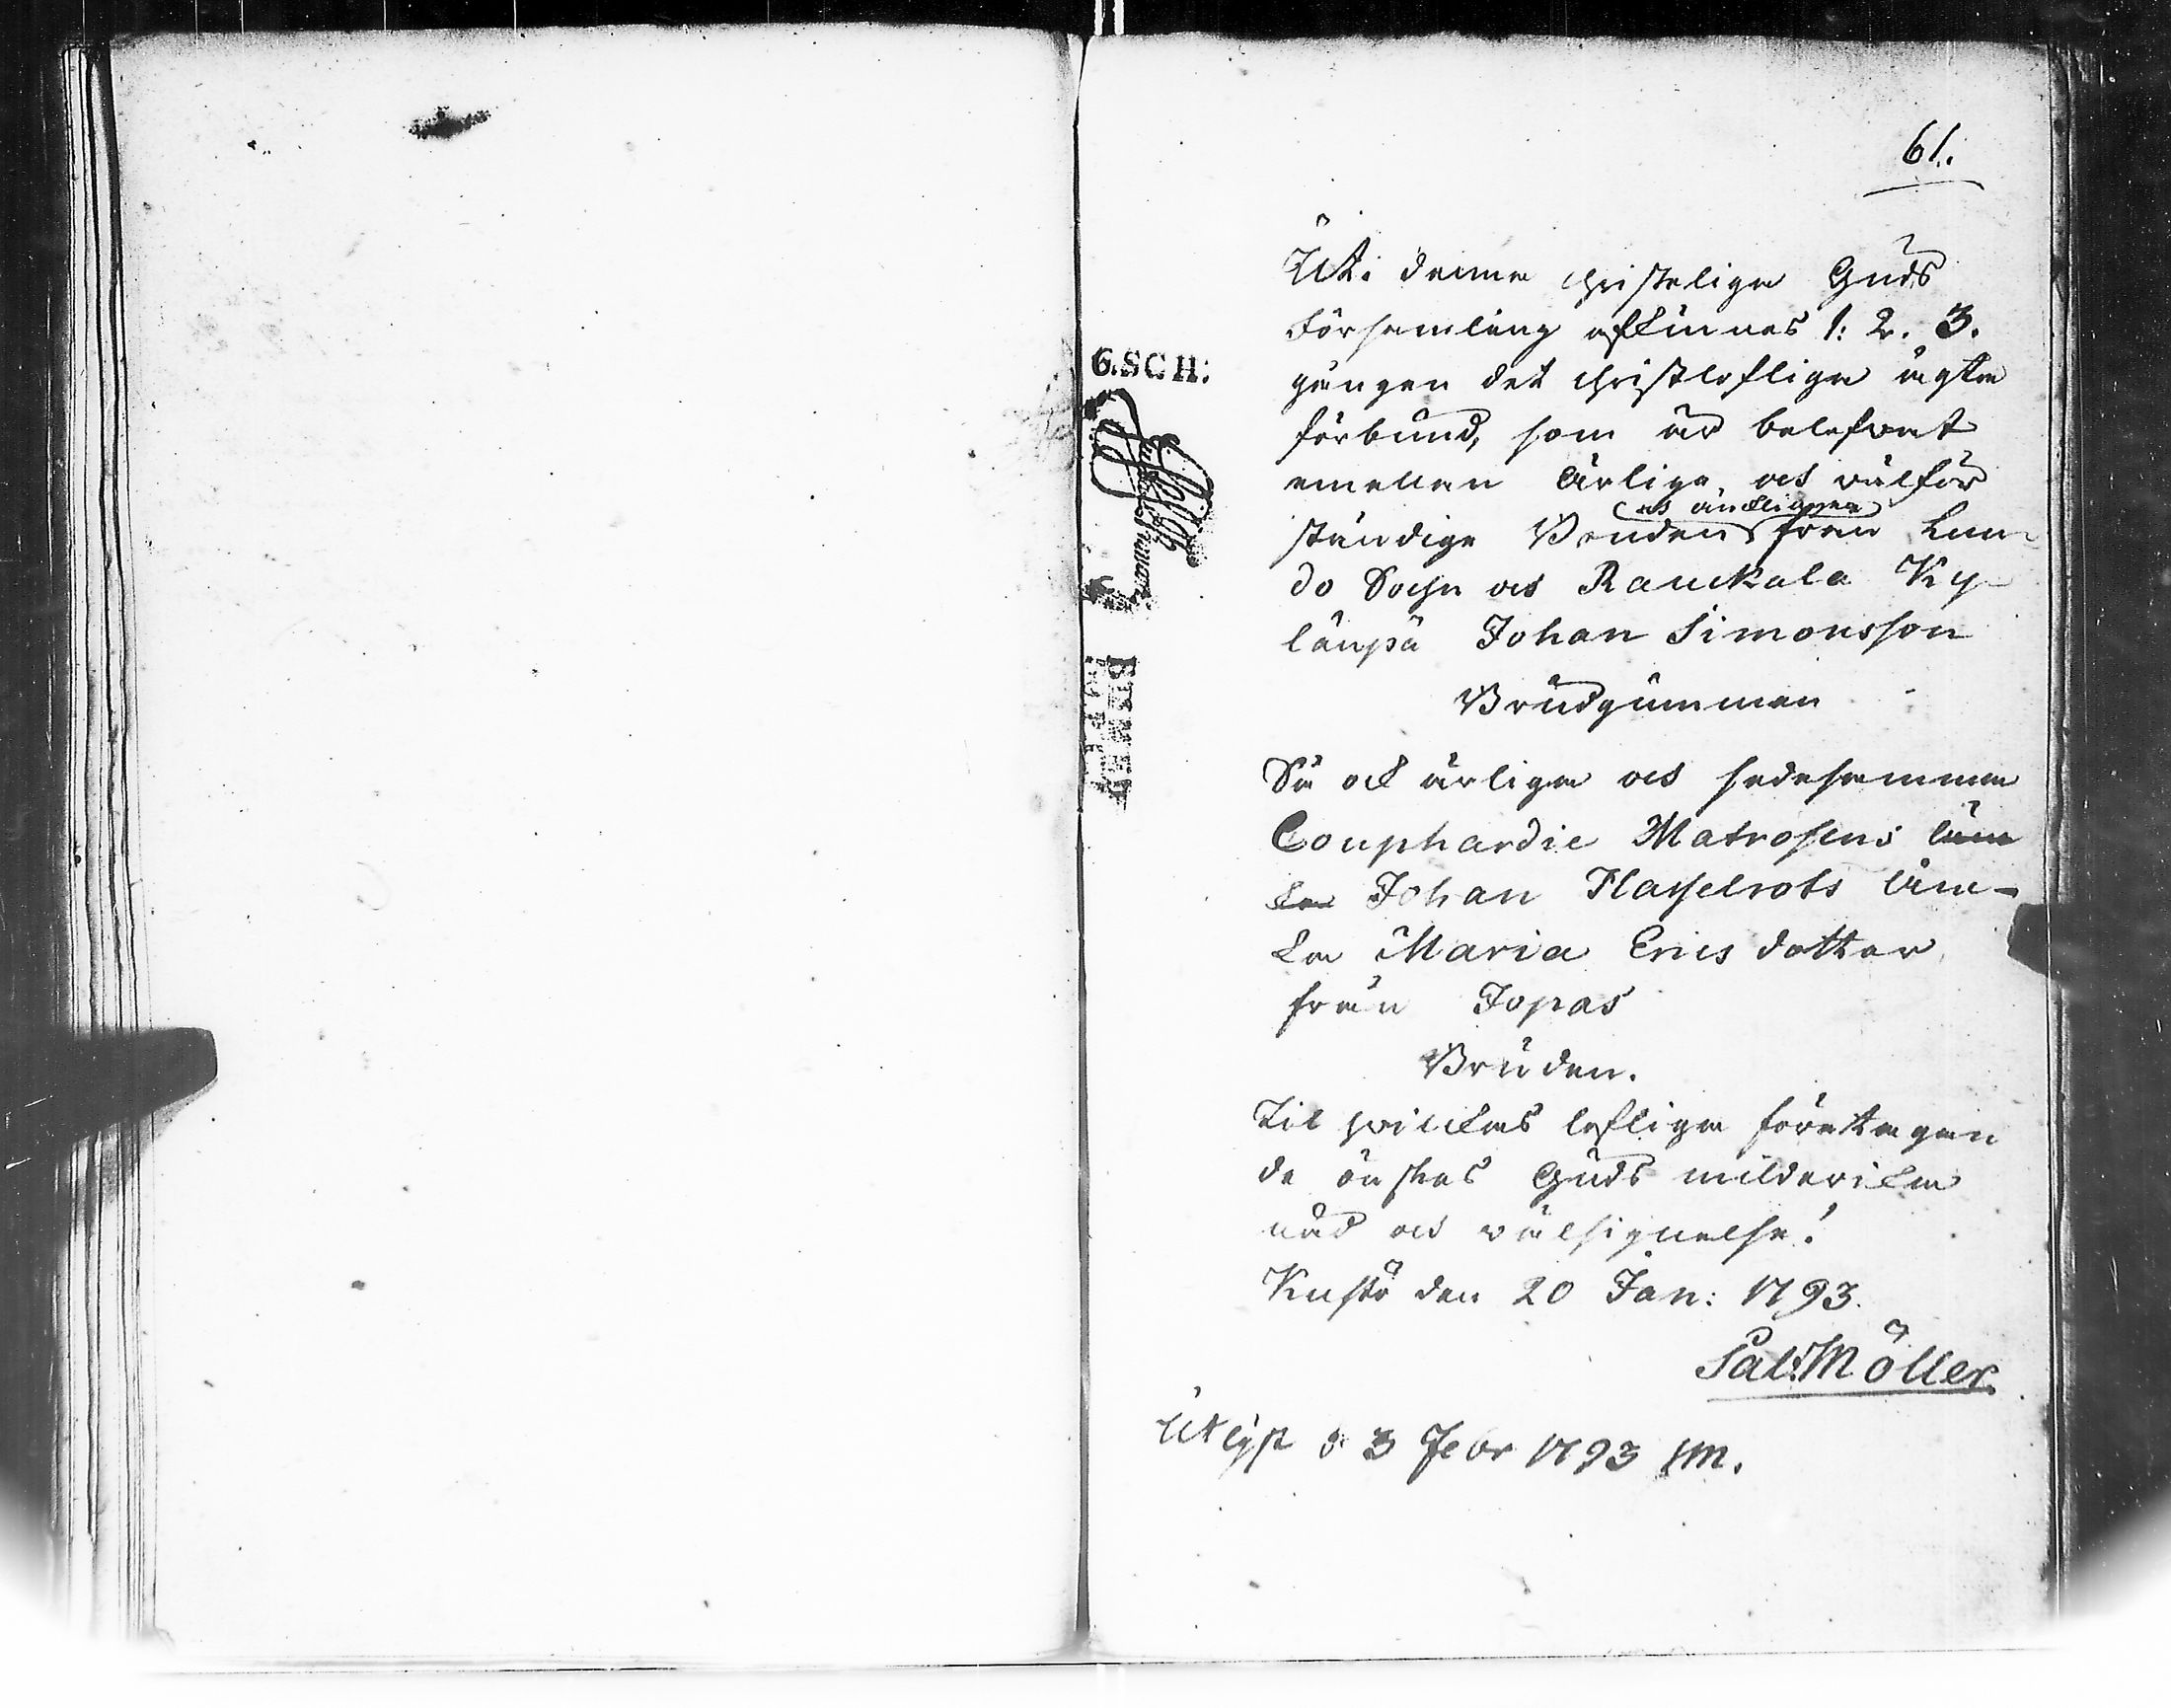 61.
Uti denna christeliga Guds
Församling afkunnas 1: 2. 3.
gången det christlofliga ägta
förbund, som är belefvat
emellan Ärliga och wälför
och änklingen
ståndige Bonden från Lun-
do Sochn och Rauckala Ky-
länpä Johan Simonsson
Brudgumman
Så ock ärliga och sedesamma
Couphardie Matrosens än
ka Johan Hasselrots än-
ka Maria Ericsdotter
från Jopas
Bruden.
Til hvilckas lofliga företagan
de önskas Guds milderika
nåd och wälsignelse!
Kustö den 20 Jan: 1793.
Sal: Möller.
Utlyst d. 3 Febr 1793 SM.
6.SCH: